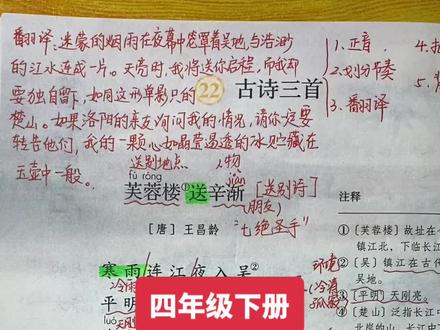 翻译:迷蒙的烟雨在夜幕中笼罩着吴地,与浩渺
的江水连成一片。天亮时,我将送你启程,而我却
要独自留下,如同这形单影只的
楚山。如果洛阳的亲友询问我的情况,请你一定要
转告他们,我的一颗心如晶莹透透的冰贮藏在
玉壶中一般。
1.正音
2.划分节奏
3.翻译
4.
5.
22 古诗三首
送别地点 人物
fú róng
jiàn
芙蓉楼①送辛渐
[送别诗]
(朋友)
[唐] 王昌龄
"七绝圣手"
寒雨连江夜入吴②
环境
平明
luò
注释
①〔芙蓉楼〕故址在
镇江北,下临长江
②〔吴〕镇江在古代
吴地。
③〔平明〕天刚亮。
④〔楚山〕泛指长江中
北岸的山,长江中
四年级下册